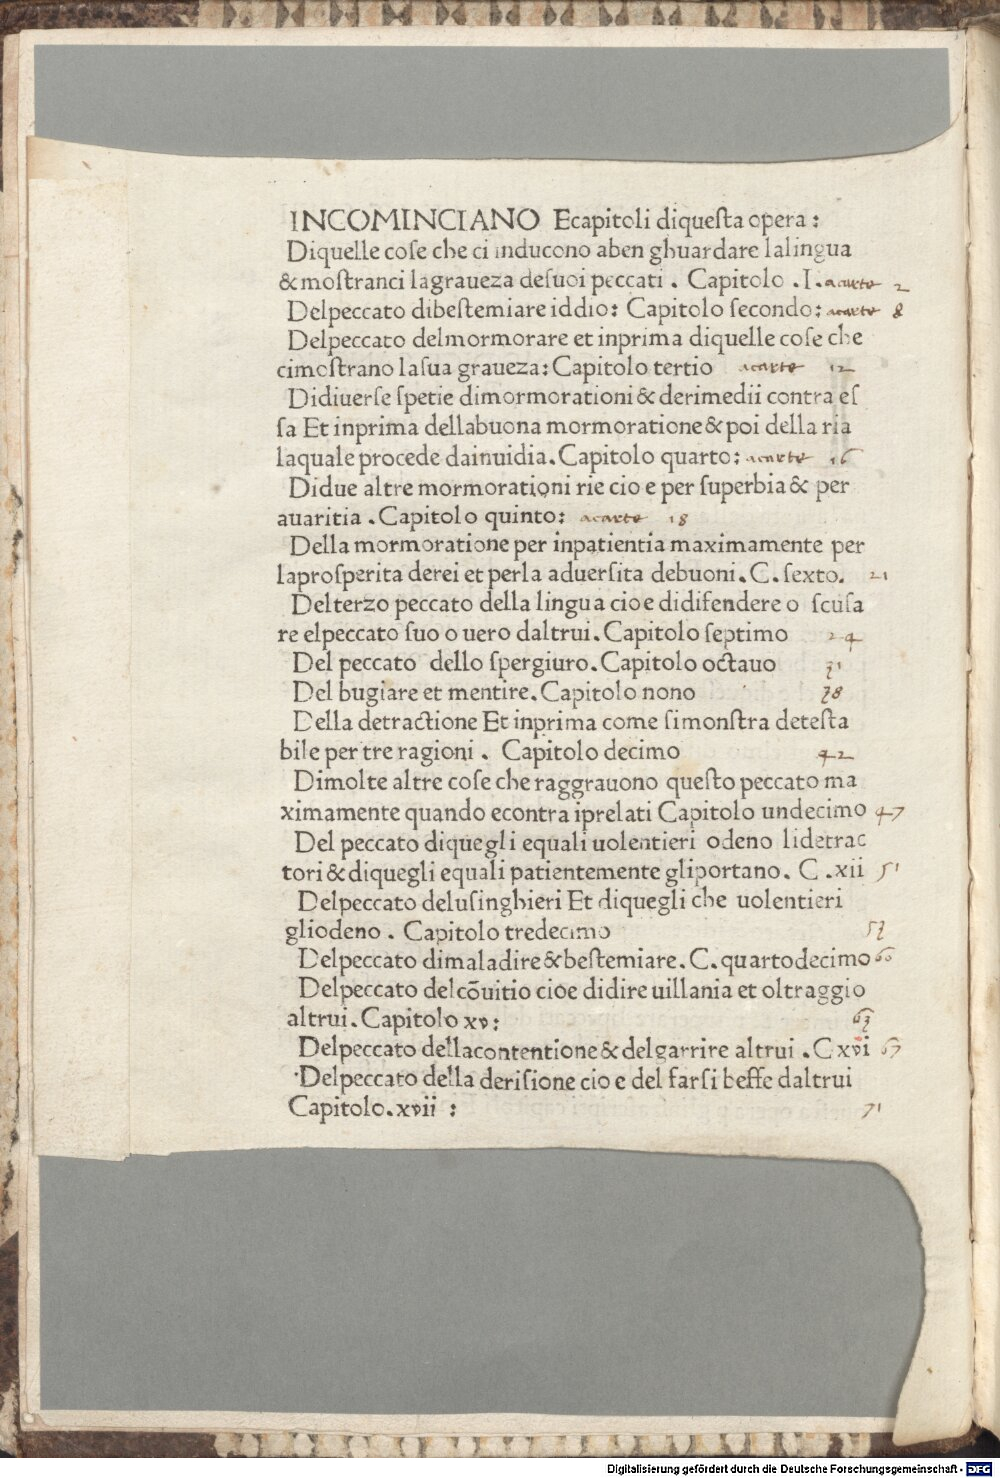 INCOMINCIANO Ecapitoli diqueſta opera :
Diquelle coſe che ci inducono aben ghuardare lalingua
& moſtranci lagraueza deſuoi peccati . Capitolo . I . acarte 2
Delpeccato dibeſtemiare iddio: Capitolo ſecondo: acarte 8
Delpeccato delmormorare et inprima diquelle coſe che
cimoſtrano laſua graueza: Capitolo tertio acarte 12
Didiuerſe ſpetie dimormorationi & derimedii contra eſ
ſa Et inprima dellabuona mormoratione & poi della ria
laquale procede dainuidia. Capitolo quarto: acarte 16
Didue altre mormorationi rie cio e per ſuperbia & per
auaritia . Capitolo quinto: acarte 18
Della mormoratione per inpatientia maximamente per
laproſperita derei et perla aduerſita debuoni. C. ſexto. 21
Delterzo peccato della lingua cioe didifendere o ſcuſa
re elpeccato ſuo o uero daltrui. Capitolo ſeptimo 24
Del peccato dello ſpergiuro. Capitolo octauo 31
Del bugiare et mentire. Capitolo nono 38
Della detractione Et inprima come ſimonſtra deteſta
bile per tre ragioni . Capitolo decimo 42
Dimolte altre coſe che raggrauono queſto peccato ma
ximamente quando econtra iprelati Capitolo undecimo 47
Del peccato diquegli equali uolentieri odeno lidetrac
tori & diquegli equali patientemente gliportano. C .xii 51
Delpeccato deluſinghieri Et diquegli che uolentieri
gliodeno . Capitolo tredecimo 53
Delpeccato dimaladire & beſtemiare. C. quartodecimo 60
Delpeccato delcōuitio cioe didire uillania et oltraggio
altrui. Capitolo xv: 63
Delpeccato dellacontentione & delgarrire altrui . C xvi 67
Delpeccato della deriſione cio e del farſi beffe daltrui
Capitolo. xvii : 71
Digitalisierung gefördert durch die Deutsche Forschungsgemeinschaft - DFG